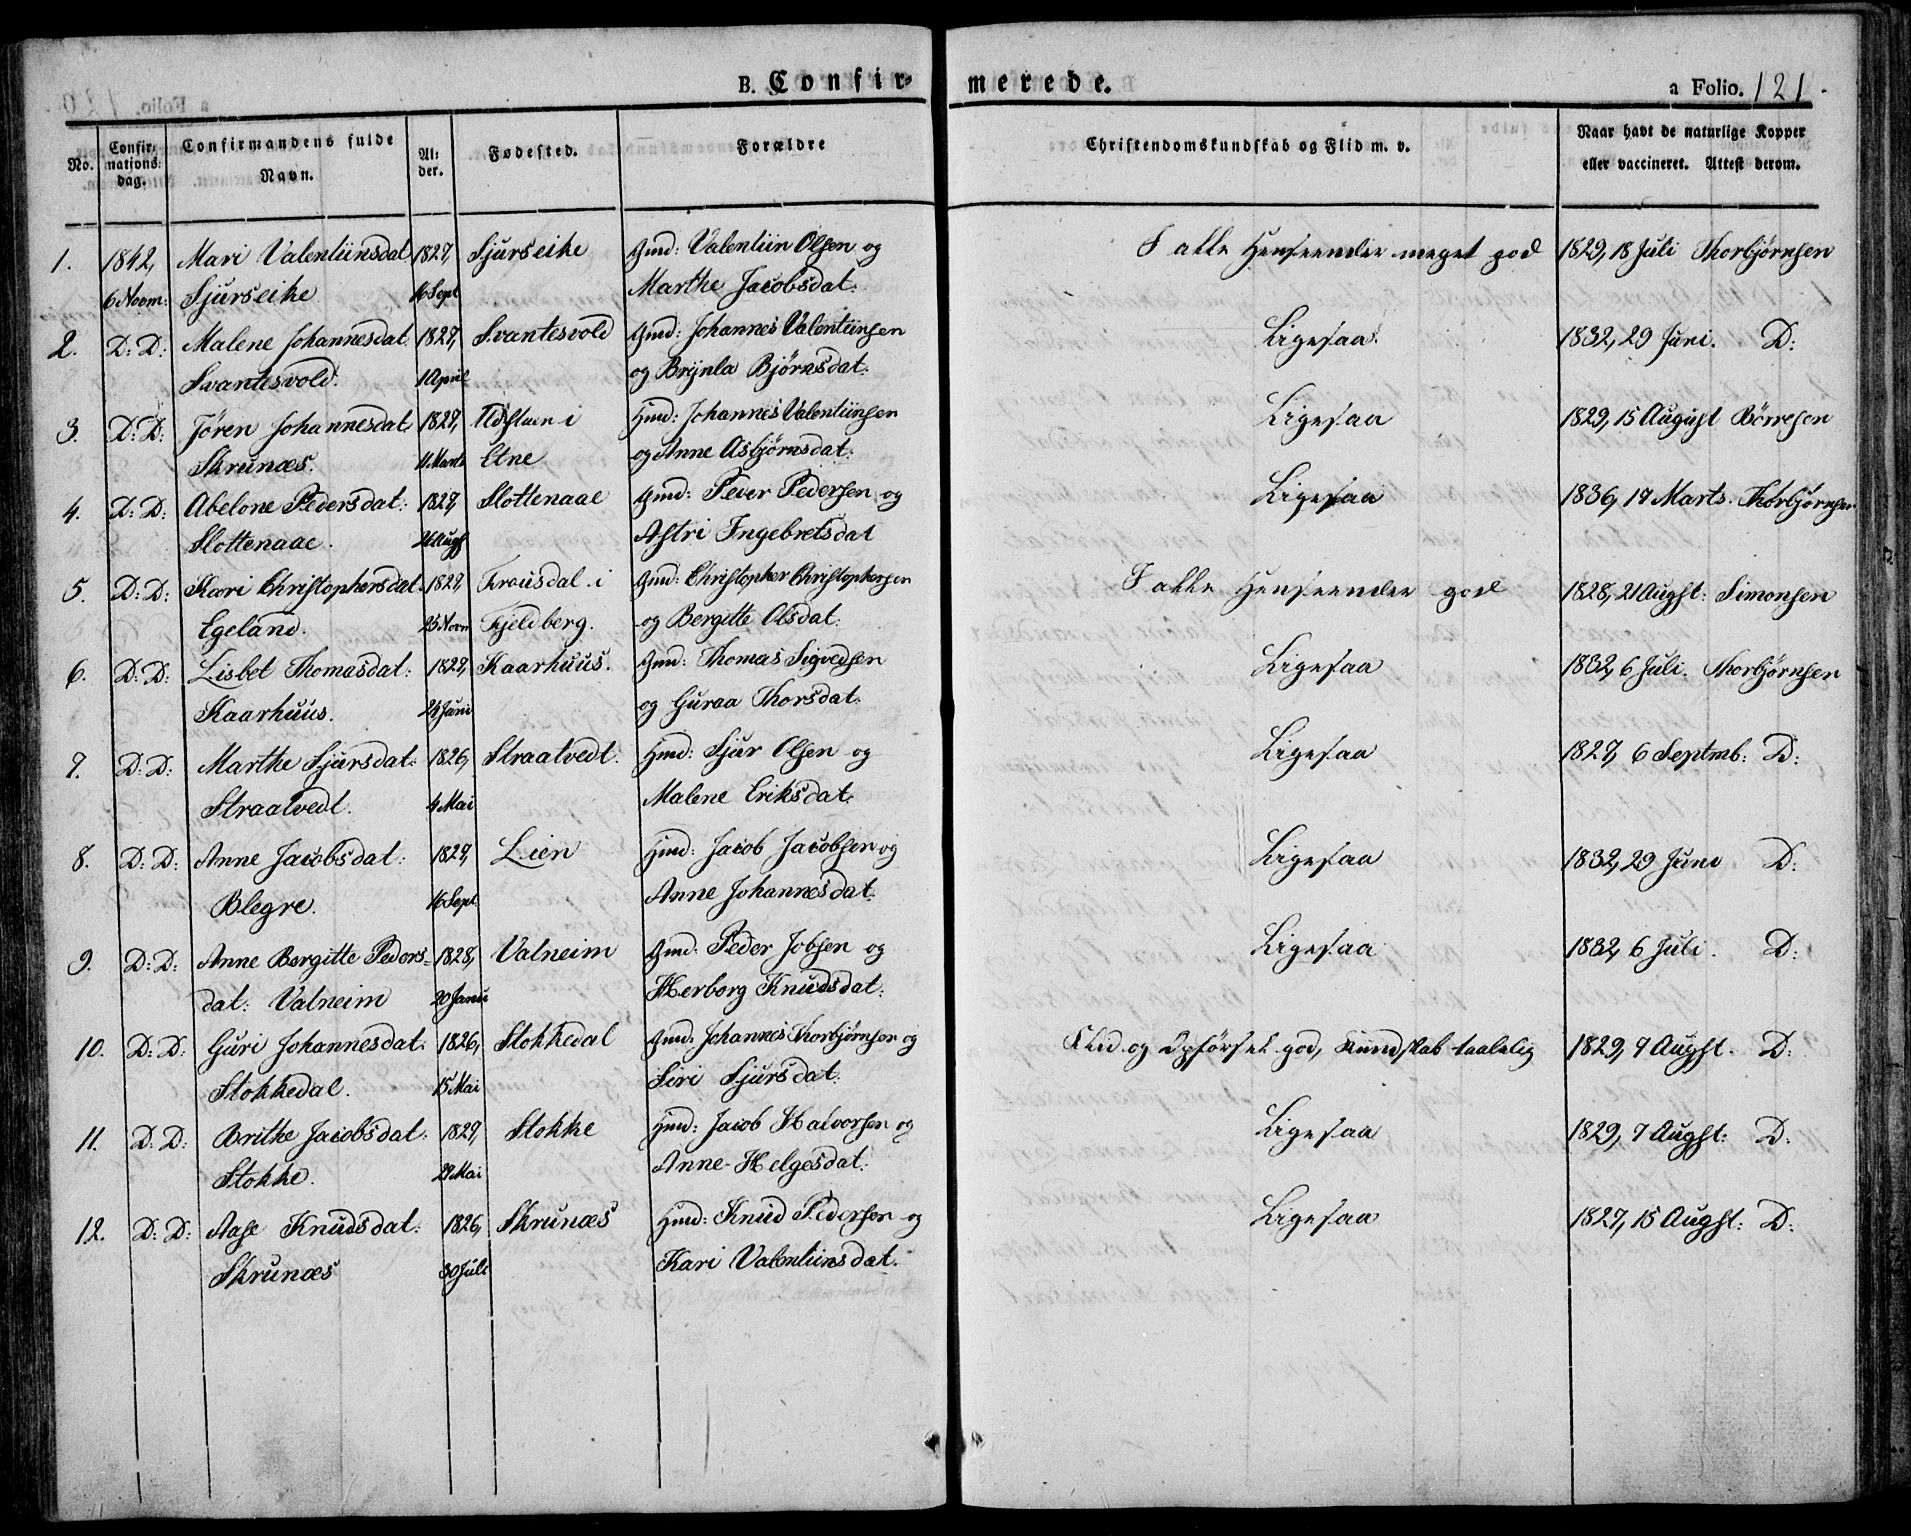 B. Confir- merede. a Folio. 121.
No. Confir- mations- dag. Confirmandens fulde Navn. Al- der. Fødested. Forældre Christendomskundskab og Flid m. v. Naar havt de naturlige Kopper eller vaccineret. Attest derom.
1. 1842, Mari Valentiinsdat 1827, Sjurseike Gmd: Valentiin Olsen og I alle Henseender meget god 1829, 18 Juli Thorbjørnsen
6 Novm: Sjurseike 16 Sept Marthe Jacobsdat:
2. D: D: Malene Johannesdat: 1827, Svantesvold Gmd: Johannes Valentiinsen Ligesaa 1832, 29 Juni. D:
Svantesvold. 1 April og Brynla Bjørnsdat:
3. D: D: Jøren Johannesdat: 1827, i Hmd: Johannes Valentiinsen Ligesaa 1829, 15 August Börresen
Skrunæs. 11 Marts Etne og Anne Asbjørnsdat:
4. D: D: Abelone Pedersdat: 1827, Slottenaae Gmd: Peder Pedersen og Ligesaa 1836, 17 Marts. Thorbjørnsen
Slottenaae. Augst Astri Ingebretsdat
5. D: D: Kari Christophersdat: 1827, i Gmd: Christopher Christophersen I alle Henseender god 1828, 21 Augst: Simonsen
Egeland. 25 Novm Fjeldberg. og Bergitte Olsdat:
6. D: D: Lisbet Thomasdat: 1827, Kaarhuus. Gmd: Thomas Sigvedsen Ligesaa 1832, 6 Juli. Thorbjørnsen
Kaarhuus. 24 Juni og Guraa Thorsdat:
7. D: D: Marthe Sjursdat: 1826, Straatvedt. Hmd: Sjur Olsen og Ligesaa 1827, 6 Septmb: D:
Straatvedt. 4 Mai Malene Eriksdat:
8. D: D: Anne Jacobsdat: 1827, Lien Hmd: Jacob Jacobsen og Ligesaa 1832, 29 Juni D:
Blegre. 16 Sept. Anne Johannesdat:
9. D: D: Anne Bergitte Peders- 1828, Valneim Gmd: Peder Jobsen og Ligesaa 1832, 6 Juli. D:
dat: Valneim 20 Janu Herborg Knudsdat:
10. D: D: Guri Johannesdat: 1826, Stokkedal Gmd: Johannes Thorbjørnsen og Flid og Opførsel god, Kundskab taalelig 1829, 7 Augst. D:
Stokkedal. 15 Mai Siri Sjursdat:
11. D: D: Brithe Jacobsdat: 1827, Stokke Hmd: Jacob Halvorsen og Ligesaa 1829, 7 Augst: D:
Stokke. 29 Mai Anne Helgesdat:
12. D: D: Aase Knudsdat: 1826, Skrunæs Hmd: Knud Pedersen og Ligesaa 1827, 15 Augst: D:
Skrunæs 30 Juli Kari Valentiinsdat: